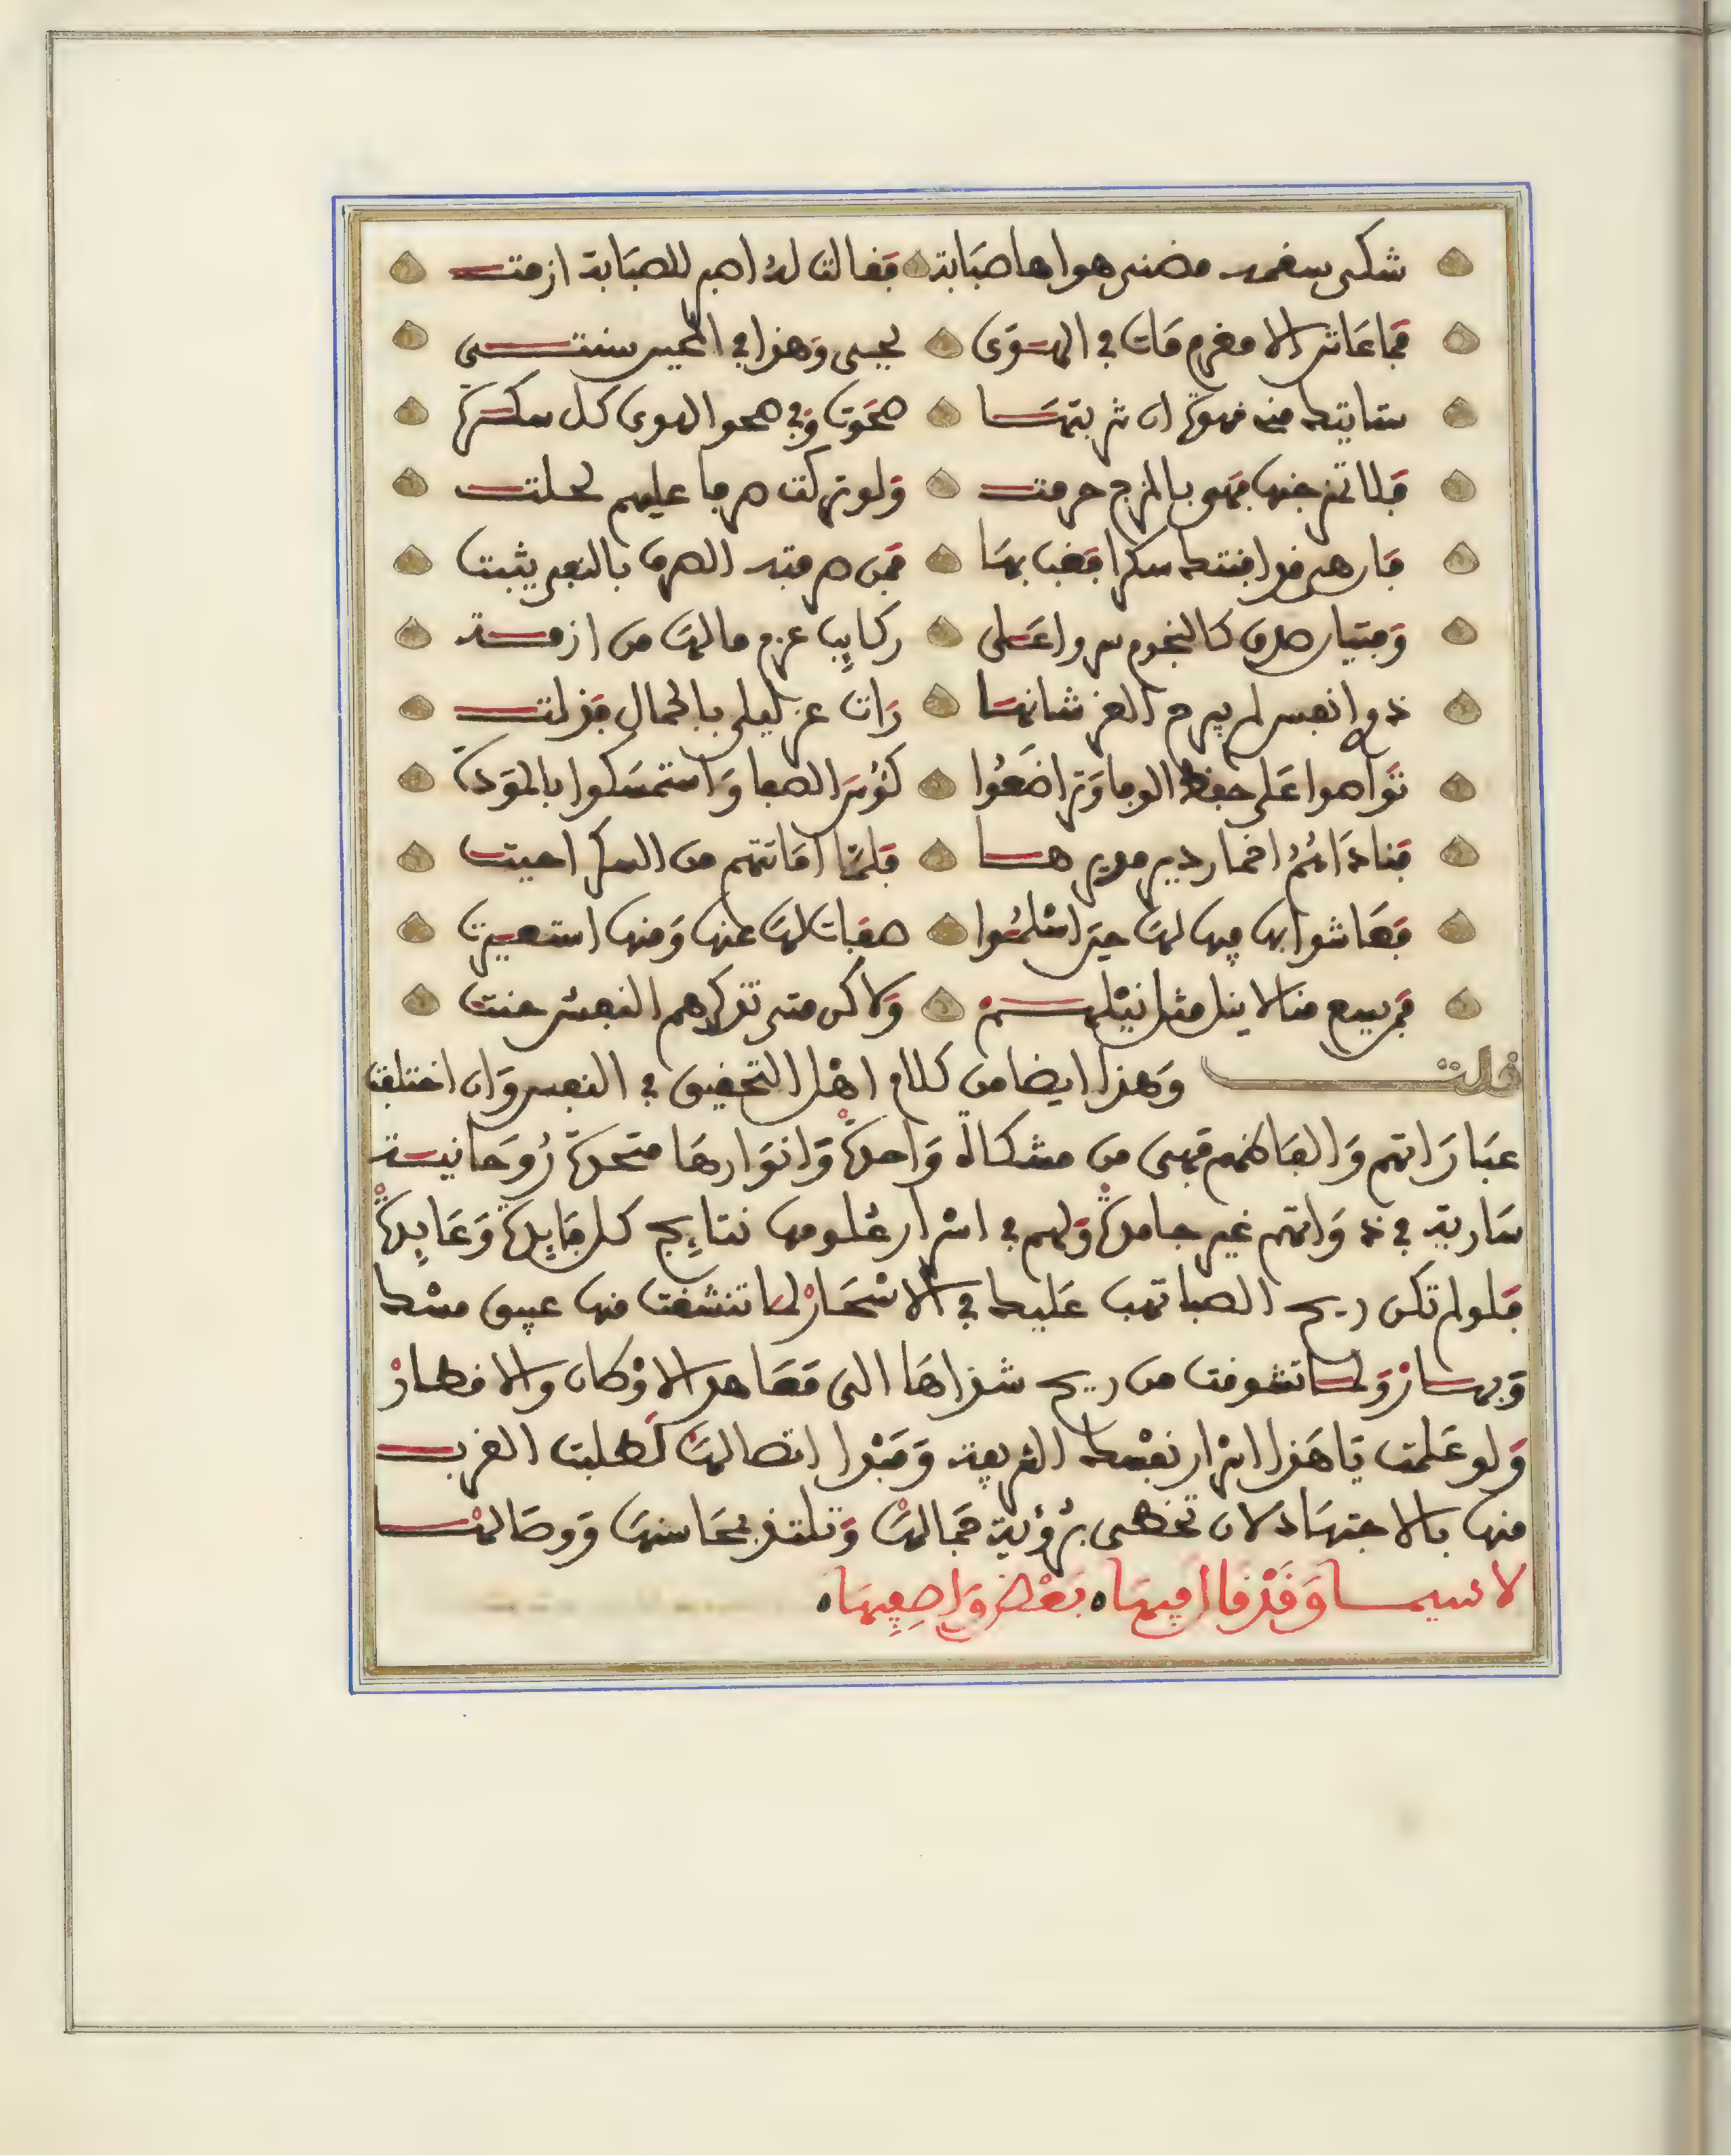 شكى سقمه مضنى هواها صبابة فقالت له اصبر للصبابة ازمت
فما عاش الا مغرم مات في الهوى يحيى وهذا في المحبين سنتي
ستاتيك منه قهوة ان شربتها صحوت وفي صحو الهوى كل سكرة
فلا تمزجنها فهي بالمزج حرمت ولو تركت صرفا عليهم لحلت
فان هي قد افنتك سكرا فغب بها فمن صرفته الصرف بالنفي يثبت
وفتيان صدق كالنجوم سروا على ركايب عزم ما لها من ازمة
ذووا نفس لم يبرح العز شانها رات عز ليلى بالجمال فذلت
تواصوا على حفظ الوفا وتراضعوا كؤس الصفا واستمسكوا بالمودة
فناداهم اخمار دير مدير ها فلما اماتتهم من السكر احيت
فعاشوا بها فيها لها حين اسلموا صفات لها عنها ومنها استعيرت
فمن يدع منا لا ينل مثل نيلهم ولاكن متى تذكرهم النفس حنت
قلت وهذا ايضا من كلام اهل التحقيق في النفس وان اختلفت
عباراتهم والفاظهم فهي من مشكاة واحدة وانوارها متحدة روحانية
سارية في ذواتهم غير جامدة ولهم في اسرار علومها نتايج كل فايدة وعايدة
فلو لم تكن ريح الصبا تهب عليك في الاسحار لما تنشقت منها عبيق مسك
وبهار ولما تشوقت من ريح شذاها الى معاهد الاوطان والاقطار
ولو علمت يا هذا اسرار نفسك الشريفة ومبدا اتصالها لطلبت القرب
منها بالاجتهاد لان تحظى برؤية جمالها وتلتذ بمحاسنها ووصالها
لا سيما وقد قال فيها بعض واصفيها